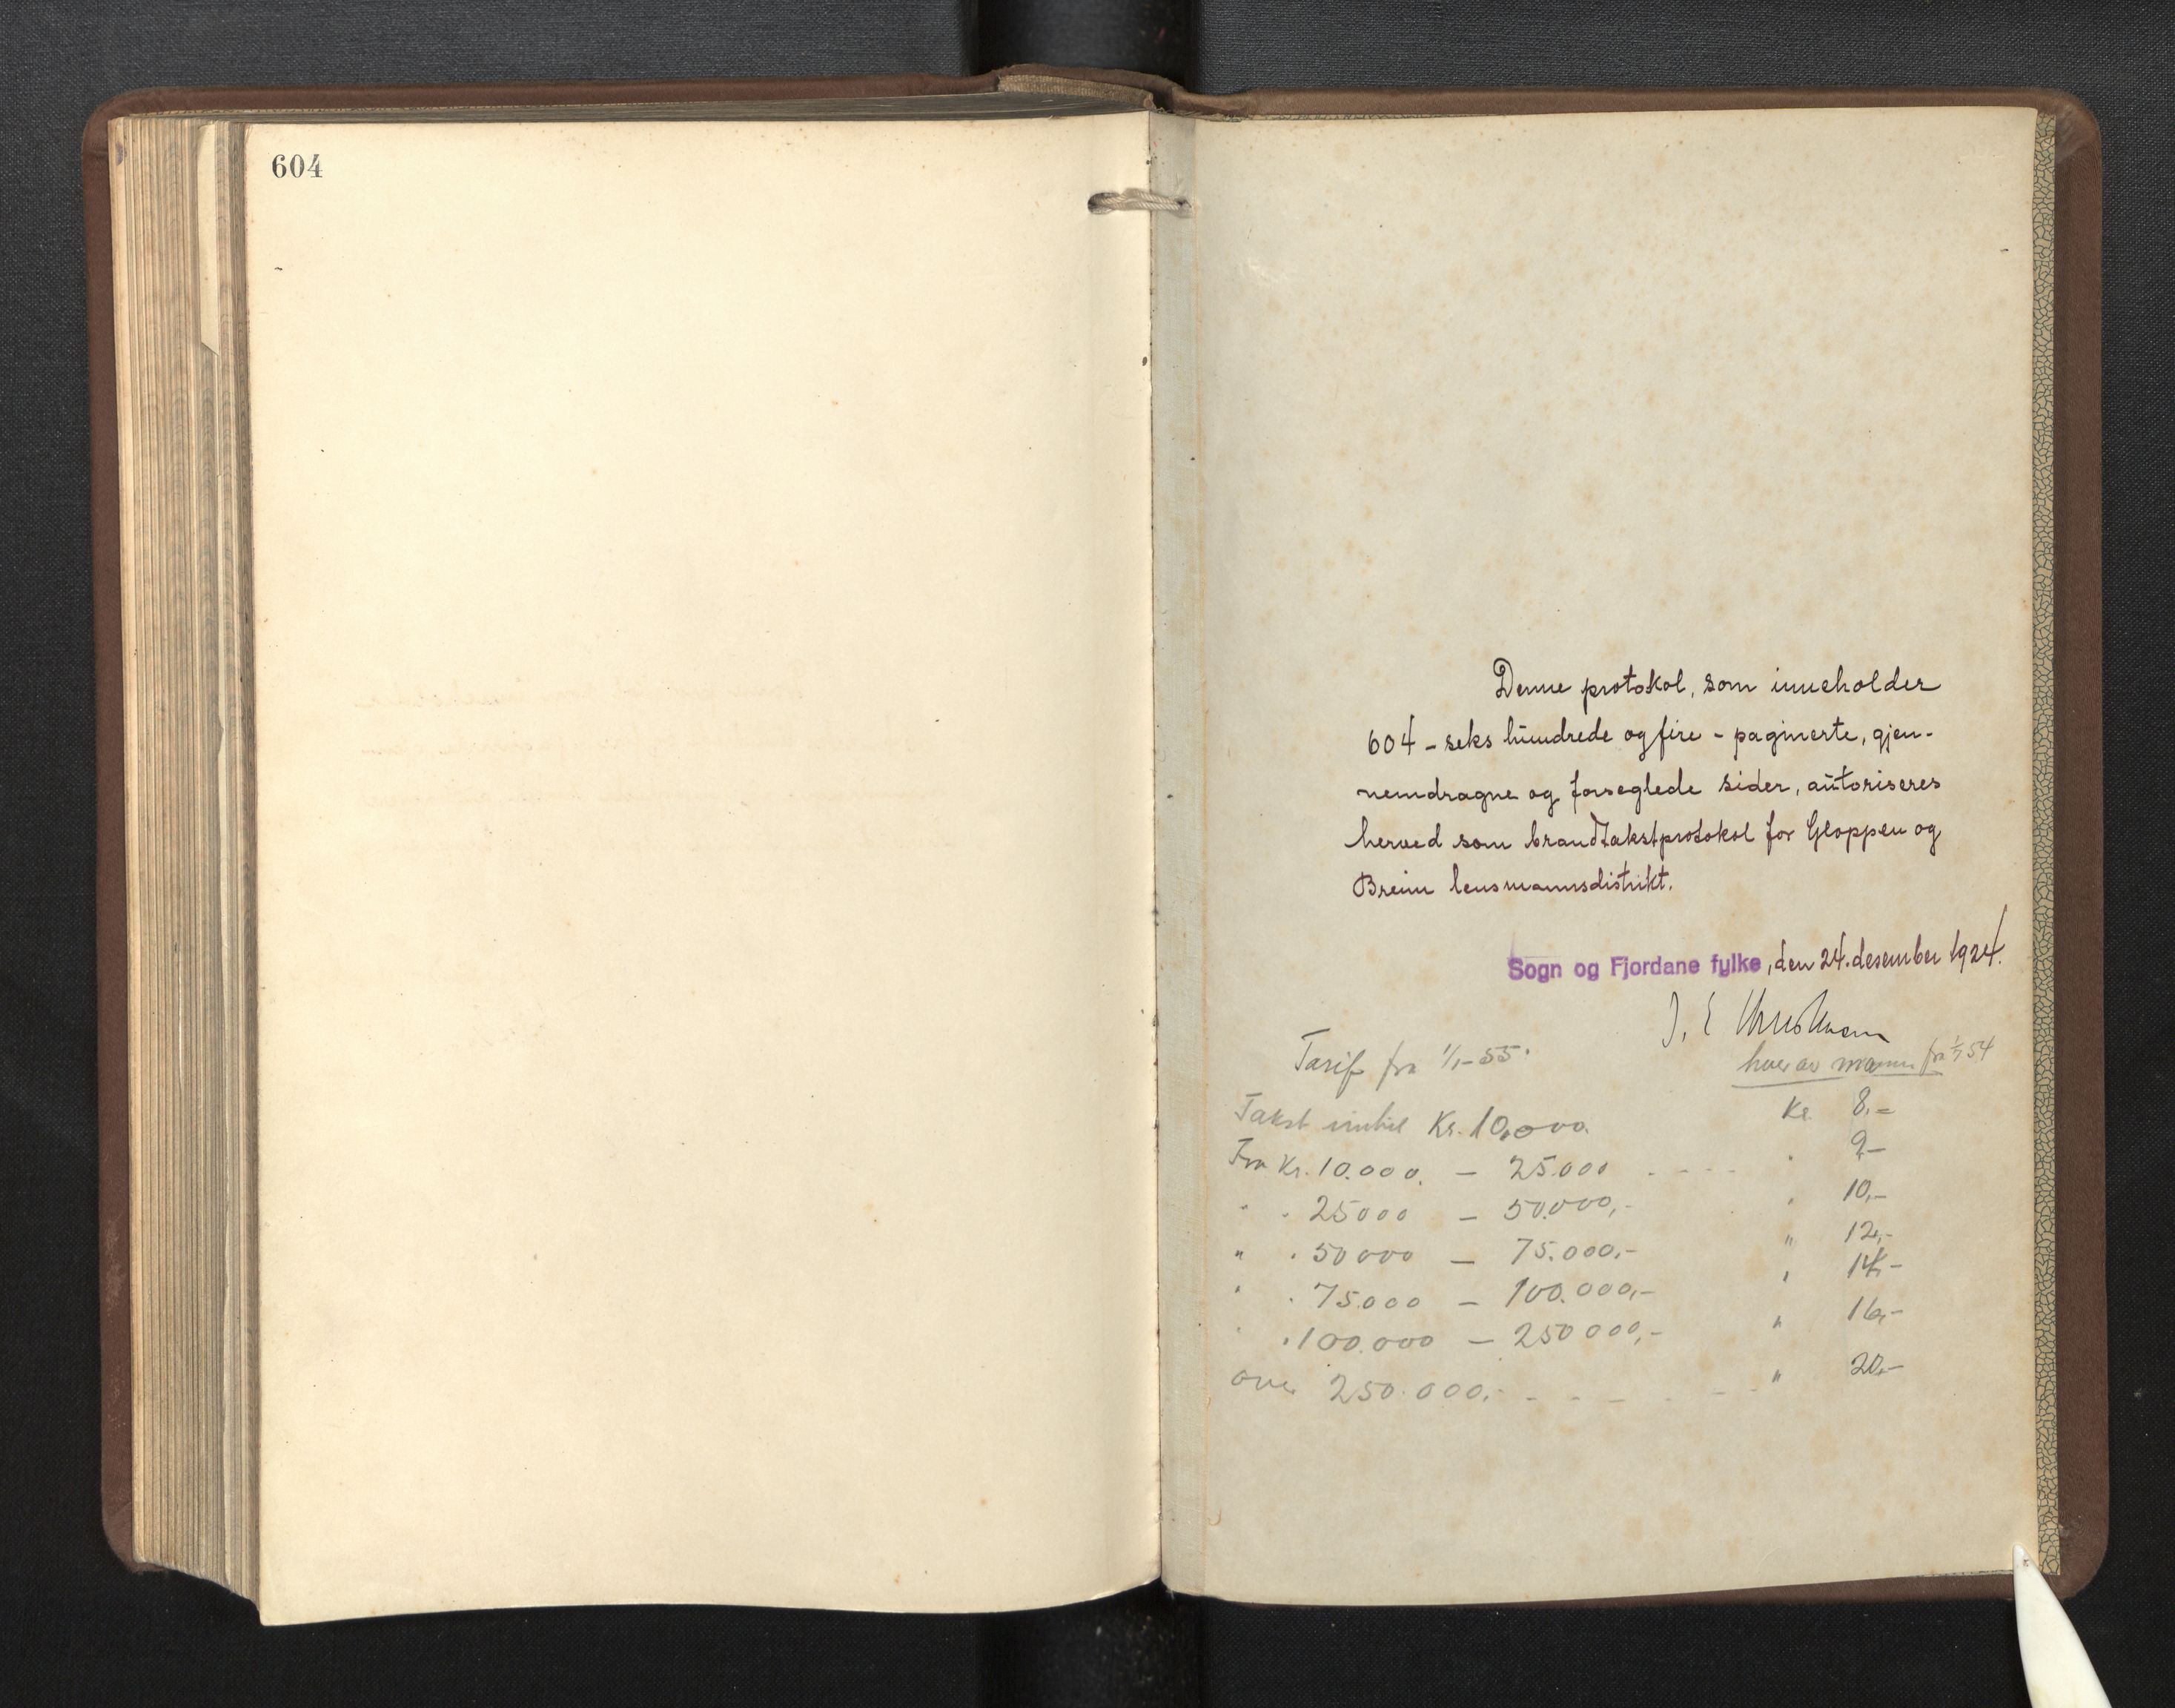 604
Denne protokol, som inneholder
604 - seks hundrede og fire - paginerte, gjen-
nemdragne og forseglede sider, autoriseres
herved som brandtakstprotokol for Gloppen og
Breim lensmannsdistrikt.
Sogn og Fjordane fylke, den 24. desember 1924.
J. E Christensen
Tarif fra 1/1-55.
hver av mann fra 1/7 54
Takst inntil Kr. 10,000. Kr. 8,=
Fra Kr. 10.000. - 25.000 - - - - " 9,-
" " 25000 - 50.000,- " 10,-
" " 50000 - 75.000,- " 12,-
" " 75.000 - 100.000,- " 14,-
" " 100.000 - 250000,- " 16,-
over 250.000,- - - - - - " 20,-